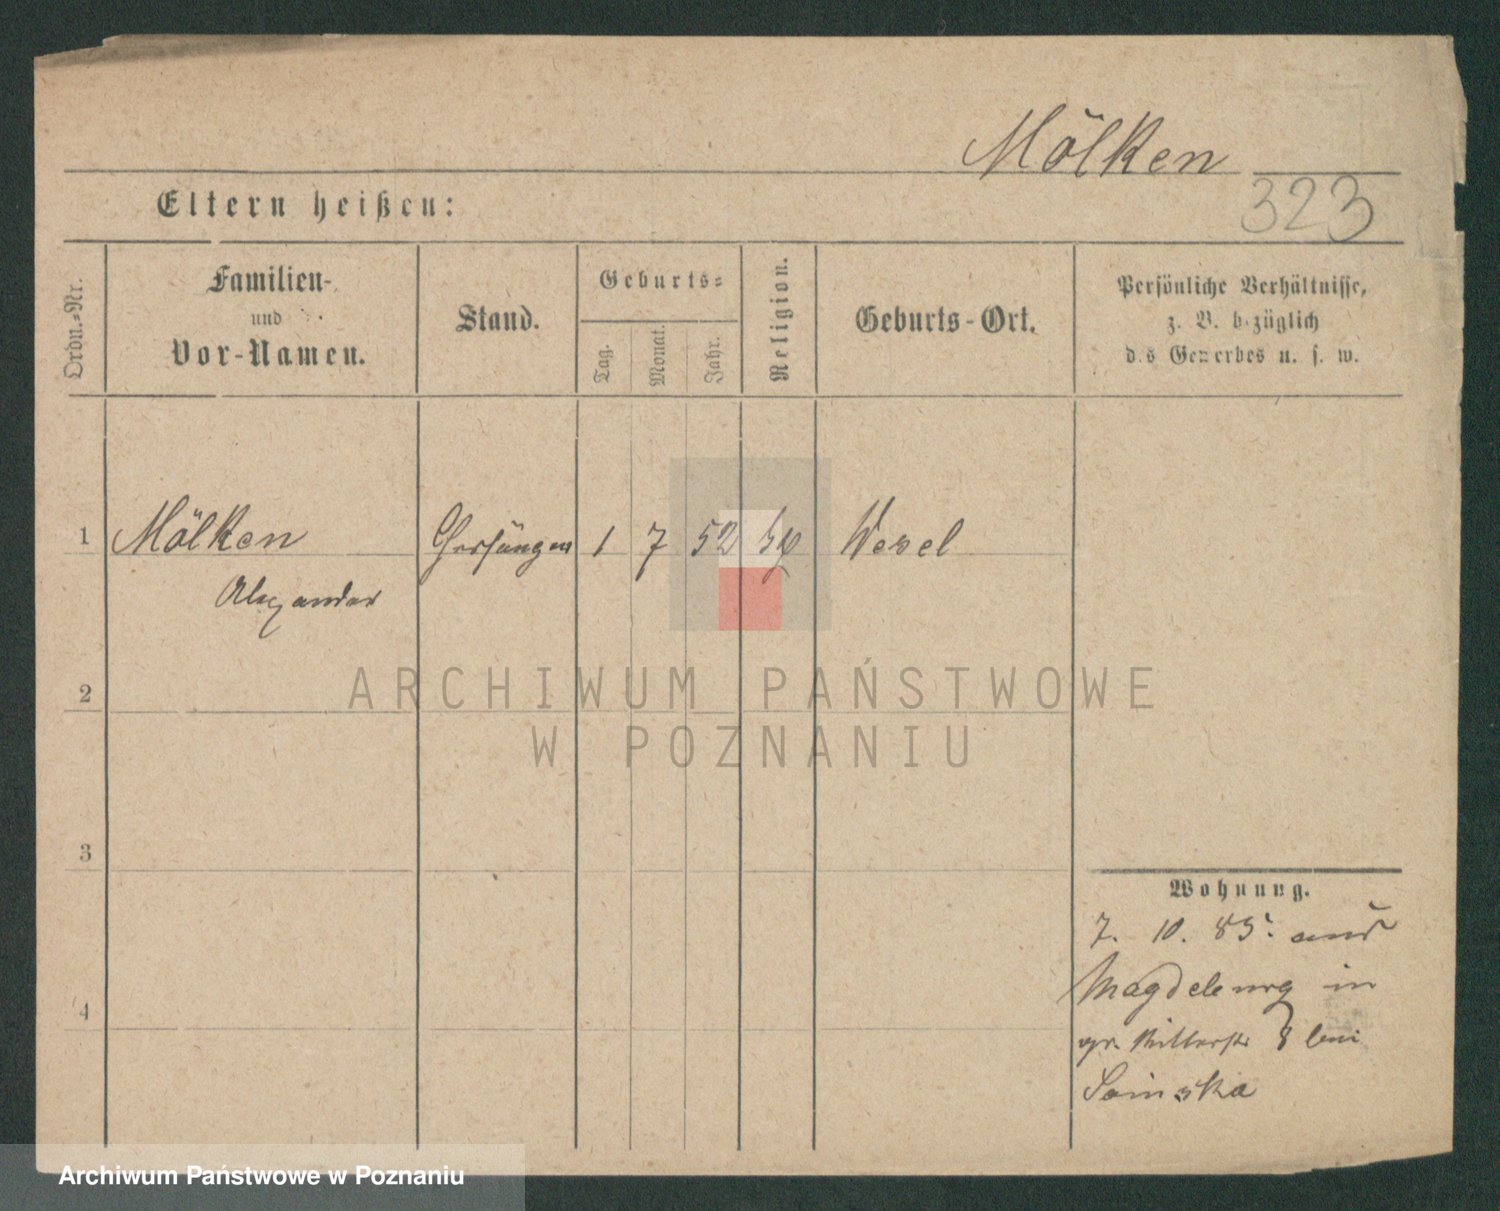 Mölken
323
Eltern heißen:
Ordn.-Nr.
Familien-
und
Vor-Namen.
Stand.
Geburts-
Tag.
Monat.
Jahr.
Religion.
Geburts-Ort.
Persönliche Verhältnisse,
z. B. bezüglich
des Gewerbes u. s. w.
1 Mölken 1 7 52 Wesel
Alexander
ARCHIWUM PAŃSTWOWE
W POZNANIU
2
3
4
Wohnung.
7. 10. 85. aus
Magdeburg in
gr. Ritterstr 8 bei
Archiwum Państwowe w Poznaniu